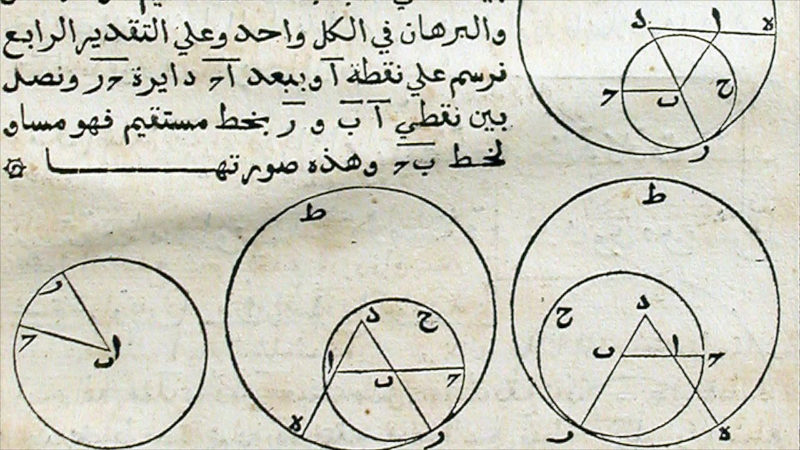 والبرهان في الكل واحد وعلي التقدير الرابع
نرسم علي نقطة ا وببعد ا ح دايرة ح ر ونصل
بين نقطي ا ب و ر بخط مستقيم فهو مساو
لخط ب ح وهذه صورتها
د ا ه
ح ب ح
ر
ط
ط
ر
ح
ا ب
د ح
ا ب ح
ه ر
ح د
ب ا ح
ر ه